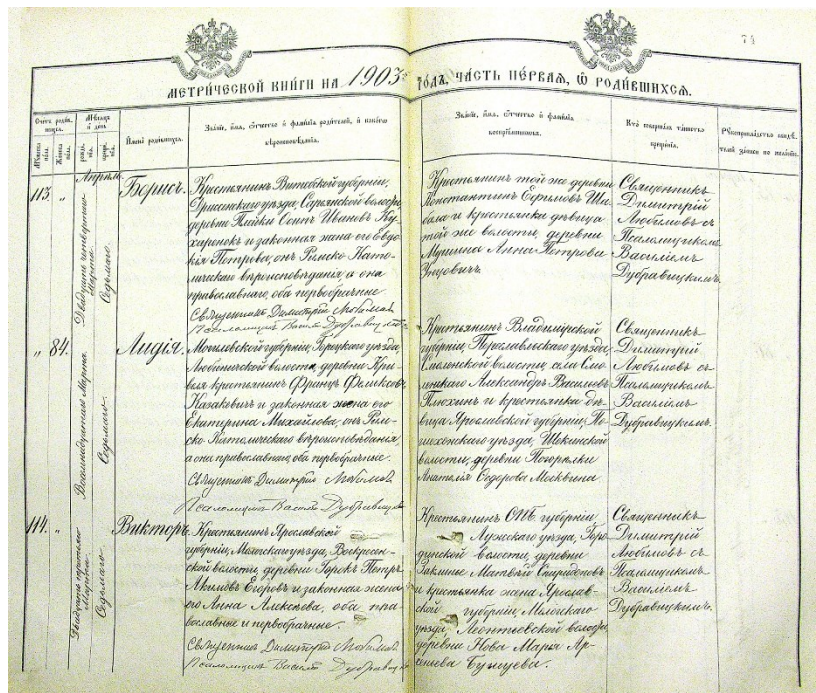 74
МЕТРИЧЕСКОЙ КНИГИ НА 1903й ГОДЪ, ЧАСТЬ ПЕРВАЯ, Ѡ РОДИВШИХСЯ.
Счетъ родившихся.
Мѣсяцъ и день
Имена родившихся.
Званіе, имя, отчество и фамилія родителей, и какого
вѣроисповѣданія.
Званіе, имя, отчество и фамилія
воспріемниковъ.
Кто совершалъ таинство
крещенія.
Рукоприкладство свидѣтелей записи по желанію.
Апрѣль.
113. „
Двадцать четвертаго
Марта
Седьмаго
Борисъ.
Крестьянинъ Витебской губерніи,
Дрисенскаго уѣзда, Сарьянской волости
деревни Плейки Осипъ Ивановъ Ку-
хиронокъ и законная жена его Евдо-
кія Петрова, онъ Римско Като-
лическаго вѣроисповѣданія, а она
православнаго, оба первобрачные
Священникъ Димитрій Любимов
Псаломщикъ Василій Дубравицкій
Крестьянинъ той же деревни
Константинъ Ефимовъ
и крестьянка дѣвица
той же волости, деревни
Анна Петрова
Священникъ
Димитрій
Любимовъ съ
Псаломщикомъ
Василіемъ
Дубравицкимъ.
„ 84.
Восемнадцатаго Марта
Седьмаго.
Лидія.
Могилевской губерніи, Горецкаго уѣзда,
волости, деревни Кри-
вля крестьянинъ Францъ Феликсовъ
Казакевичъ и законная жена его
Екатерина Михайлова, онъ Рим-
ско Католическаго вѣроисповѣданія,
а она православнаго, оба первобрачные.
Священникъ Димитрій Любимов
Псаломщикъ Василій Дубравицкій
Крестьянинъ Владимірской
губерніи, Переславльскаго уѣзда,
Смоленской волости, села Смо-
ленскаго Александръ Васильевъ
Плюхинъ и крестьянка дѣ-
вица Ярославской губерніи, По-
шехонскаго уѣзда, Щекинской
волости, деревни
Анаталія Ѳедорова Москвина
Священникъ
Димитрій
Любимовъ съ
Псаломщикомъ
Василіемъ
Дубравицкимъ.
114. „
Двадцать третьяго
Марта
Седьмаго
Викторъ.
Крестьянинъ Ярославской
губерніи, Мологскаго уѣзда, Воскресен-
ской волости, деревни Горокъ Петръ
Акимовъ Егоровъ и законная жена
его Анна Алексѣева, оба пра-
вославные и первобрачные.
Священникъ Димитрій Любимов
Псаломщикъ Василій Дубравицкій
Крестьянинъ СПБ. губерніи
Лужскаго уѣзда, Горо-
дунской волости, деревни
Заклинье Матвѣй Спиридоновъ
и крестьянка жена Ярослав-
ской губерніи, Мологскаго
уѣзда, Леонтьевской волости,
деревни Нова Марья Ар-
сеньева Бунцева.
Священникъ
Димитрій
Любимовъ съ
Псаломщикомъ
Василіемъ
Дубравицкимъ.